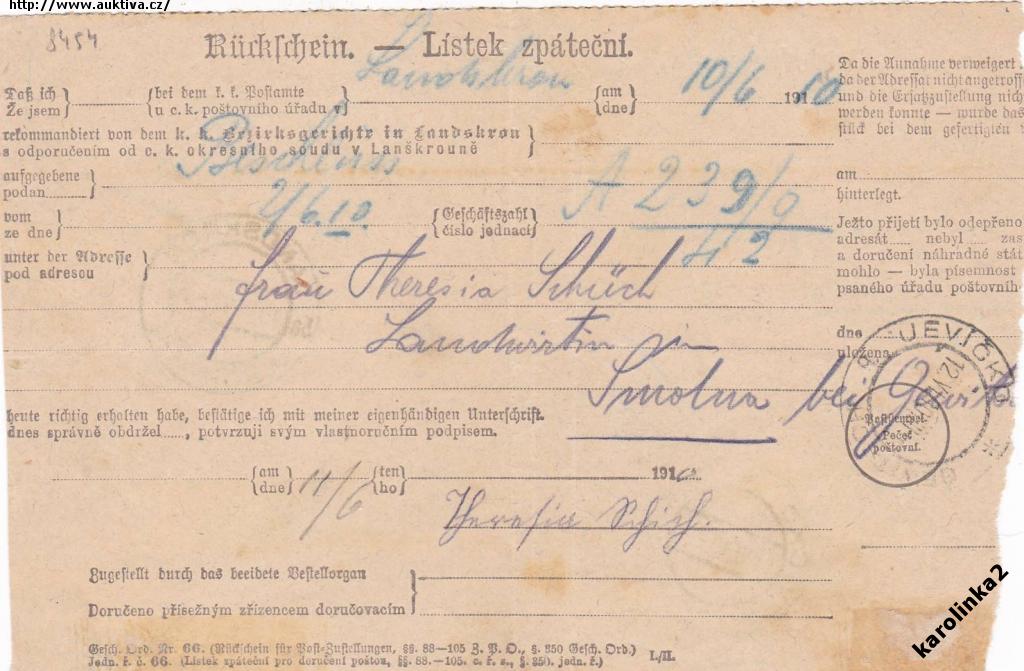 http://www.auktiva.cz/
8454
Rückschein. — Lístek zpáteční.
Daß ich
Že jsem
bei dem k. k. Postamte
u c. k. poštovního úřadu v
Landskron
am
dne
10/6 1910
rekommandiert von dem k. k. Bezirksgerichte in Landskron
s odporučením od c. k. okresního soudu v Lanškrouně
aufgegebene
podan
Beschluss
vom
ze dne
2/6.10.
Geschäftszahl
číslo jednací
A 239/9
42
unter der Adresse
pod adresou
Frau Theresia Schüch
Landwirtin in
Smolna bei
heute richtig erhalten habe, bestätige ich mit meiner eigenhändigen Unterschrift.
dnes správně obdržel....., potvrzuji svým vlastnoručním podpisem.
am
dne
11/6
ten
ho
1910
Theresia Schich.
Zugestellt durch das beeidete Bestellorgan
Doručeno přísežným zřízencem doručovacím
Gesch. Ord. Nr. 66. (Rückschein für Post-Zustellungen, §§. 88—105 Z. P. O., §. 350 Gesch. Ord.)
Jedn. ř. č. 66. (Lístek zpáteční pro doručení poštou, §§. 88—105. c. ř. s., §. 350. jedn. ř.)
I./II.
Da die Annahme verweigert
da der Adressat nicht angetroff
und die Ersatzzustellung nich
werden konnte — wurde das
stück bei dem gefertigten
am
hinterlegt.
Ježto přijetí bylo odepřeno
adresát..... nebyl ..... zas
a doručení náhradné stát
mohlo — byla písemnost
psaného úřadu poštovníh
dne
uložena
JEVÍČKO
12 VI
Poststempel.
Pečeť
poštovní.
karolinka2